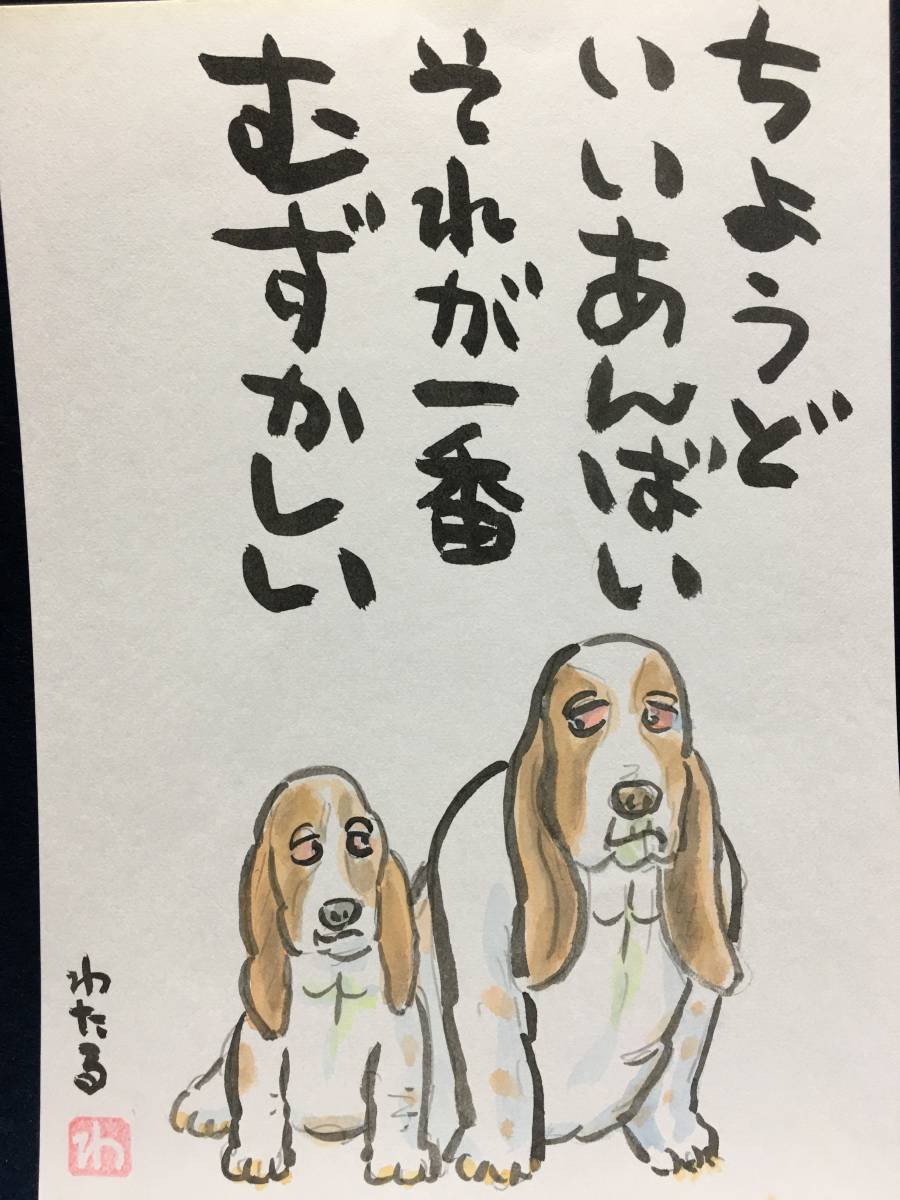 ちょうど
いいあんばい
それが一番
むずかしい
わたる
わ